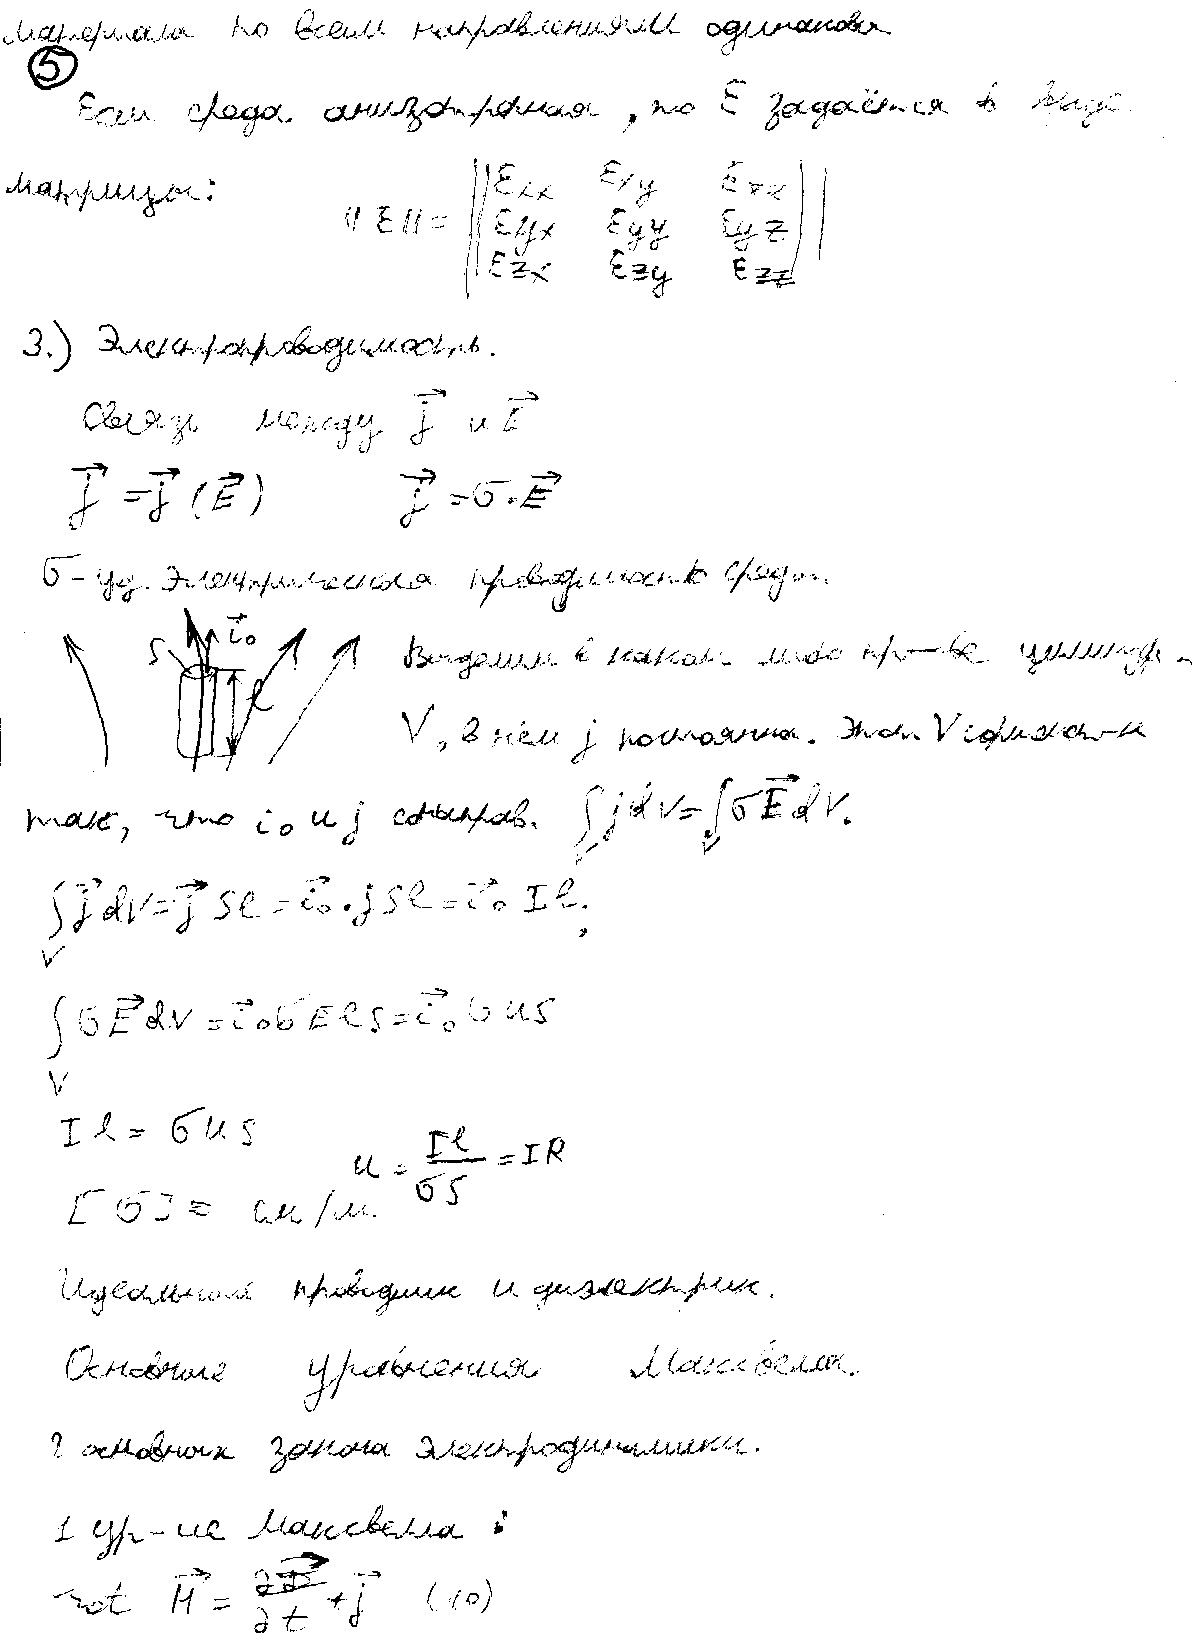 материала по всем направлениям одинаковы
5
Если среда анизотропная, то ε задаётся в виде
матрицы:
||ε|| = || εxx εxy εzx ||
εyx εyy εyz
εzx εzy εzz
3.) Электропроводимость.
Связь между j⃗ и E⃗
j⃗ = j⃗ (E⃗) j⃗ = σ·E⃗
σ - уд. электрическая проводимость среды.
S i⃗₀ l
Выделим в каком либо пр-ве цилиндр.
V, в нём j постоянна. Этот V
так, что i₀ и j сонаправ. ∫jdV = ∫σE⃗dV.
V V
∫j⃗dV = j⃗Sl = i⃗₀·jSl = i⃗₀Il;
V
∫σE⃗dV = i⃗₀σElS = i⃗₀σuS
V
Il = σuS
u = Il/σS = IR
[σ] = см/м.
Идеальный проводник и диэлектрик.
Основные уравнения Максвелла.
2 основных закона электродинамики.
1 ур-ие Максвелла:
rot H⃗ = ∂D⃗/∂t + j⃗ (10)